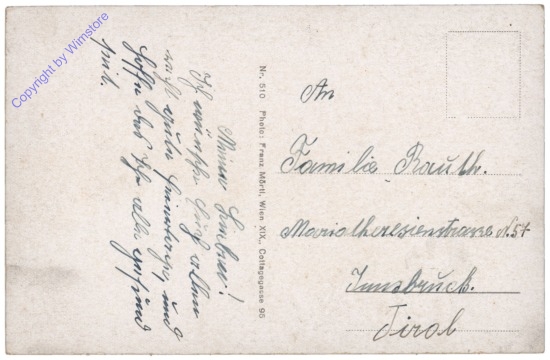 Meine Lieben!
Ich wünsche Euch allen
recht gute Feiertage, und
hoffe daß Ihr alle gesund
seit.
Nr. 510 Photo: Franz Mörtl, Wien XIX., Cottagegasse 95
An
Familie Rauth.
Mariatheresienstrasse N. 57
Innsbruck.
Tirol
Copyright by Wimstore